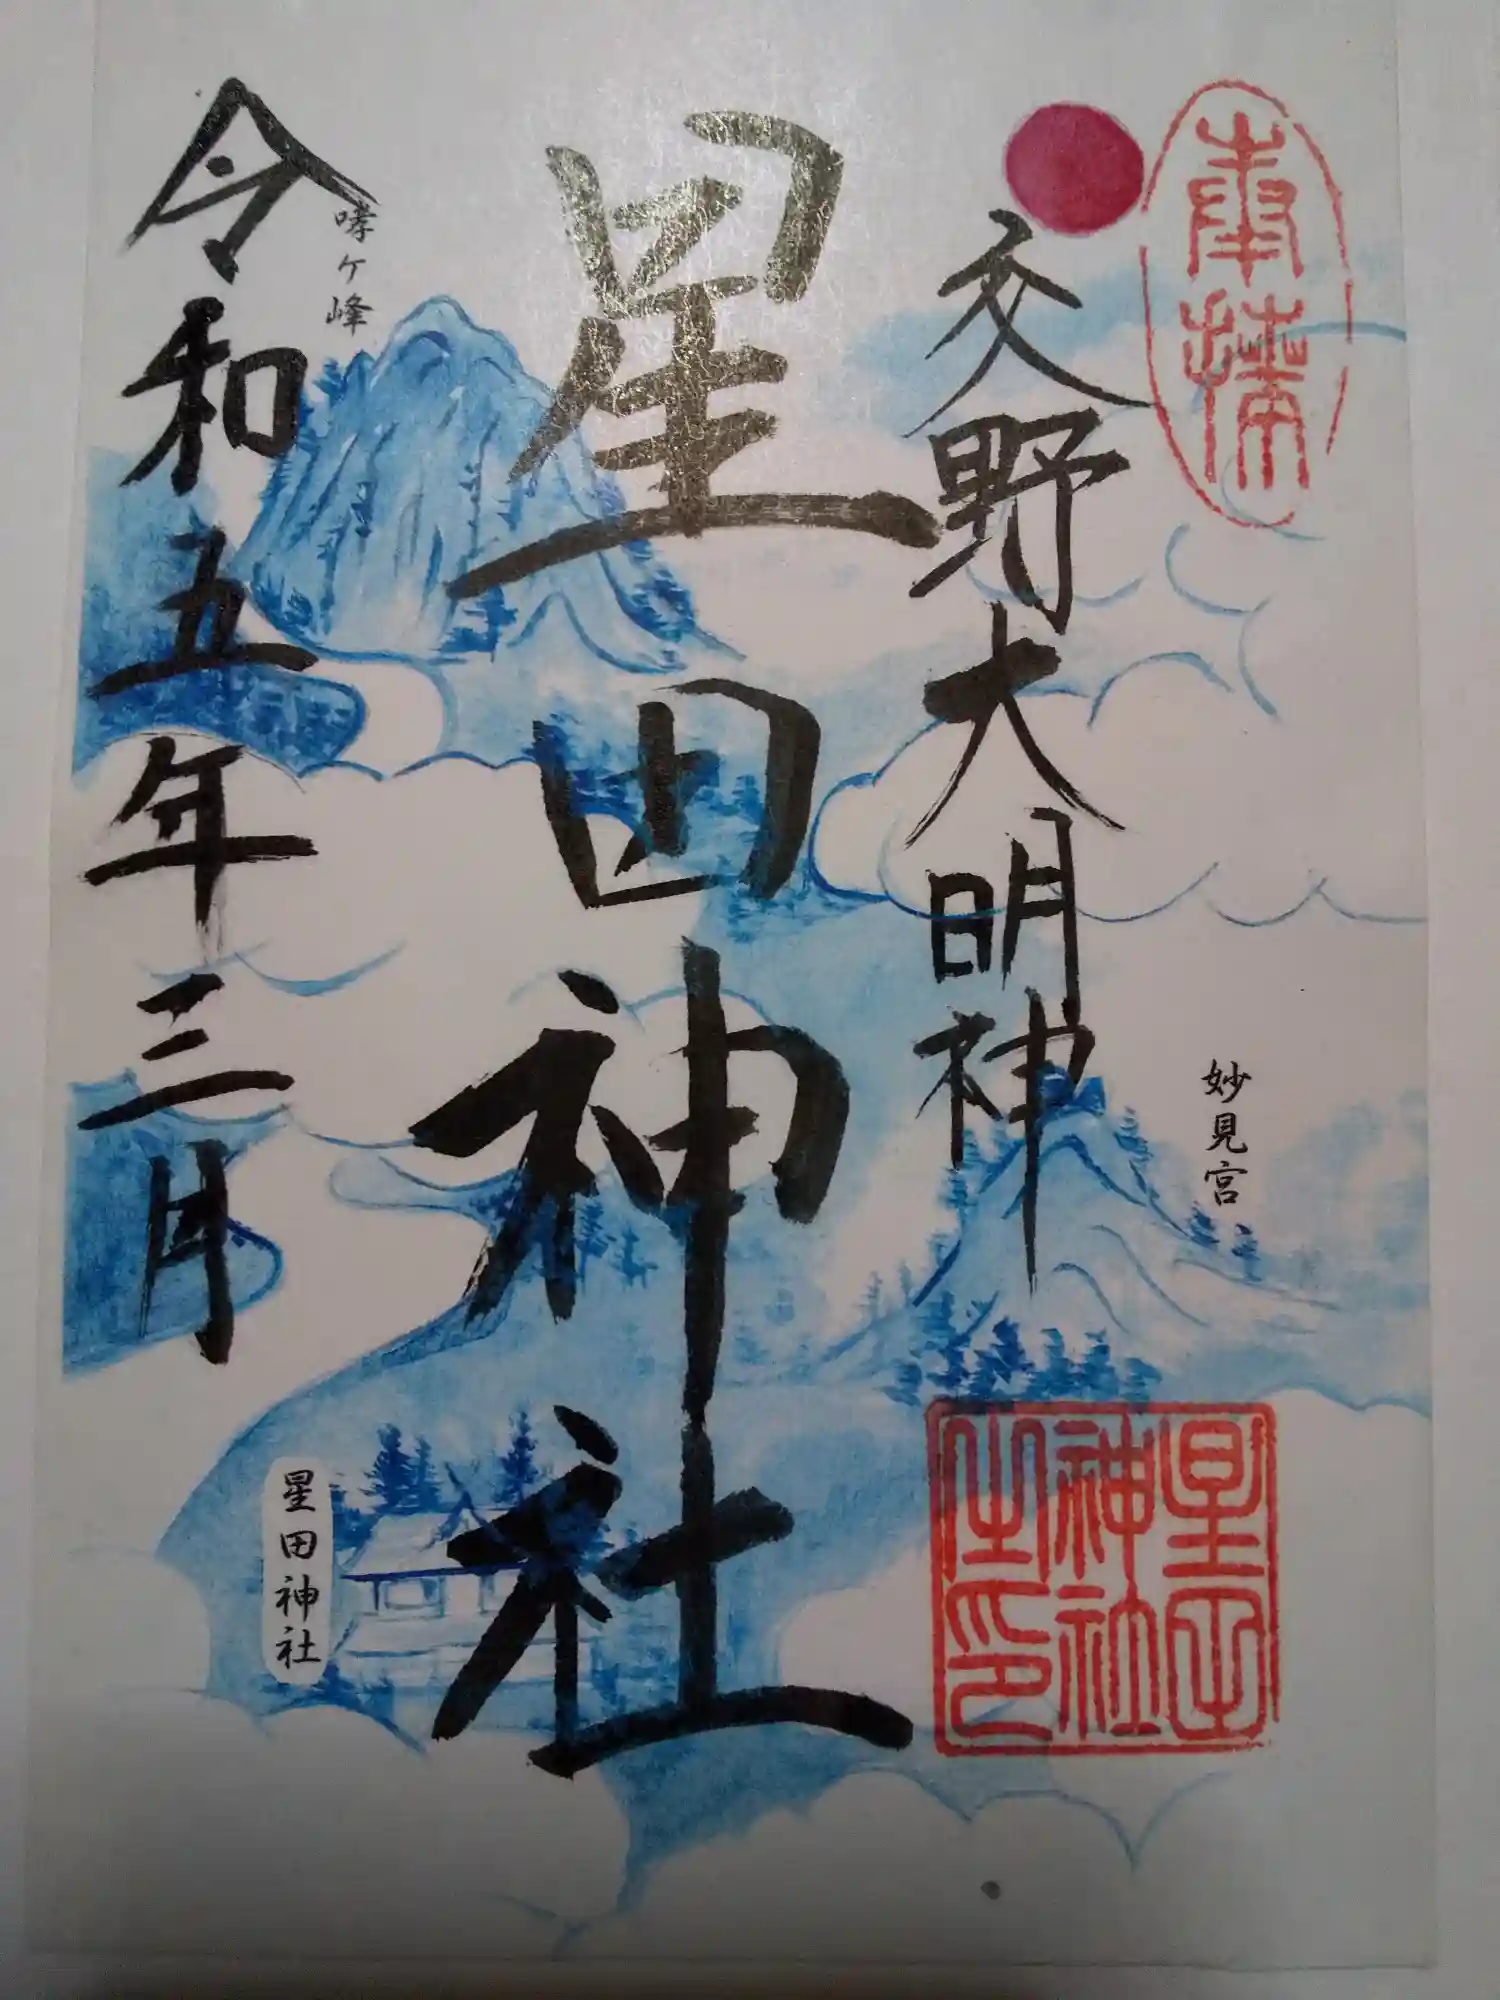 奉拝
交野大明神
妙見宮
星田神社之印
星田神社
哮ヶ峰
星田神社
令和五年三月